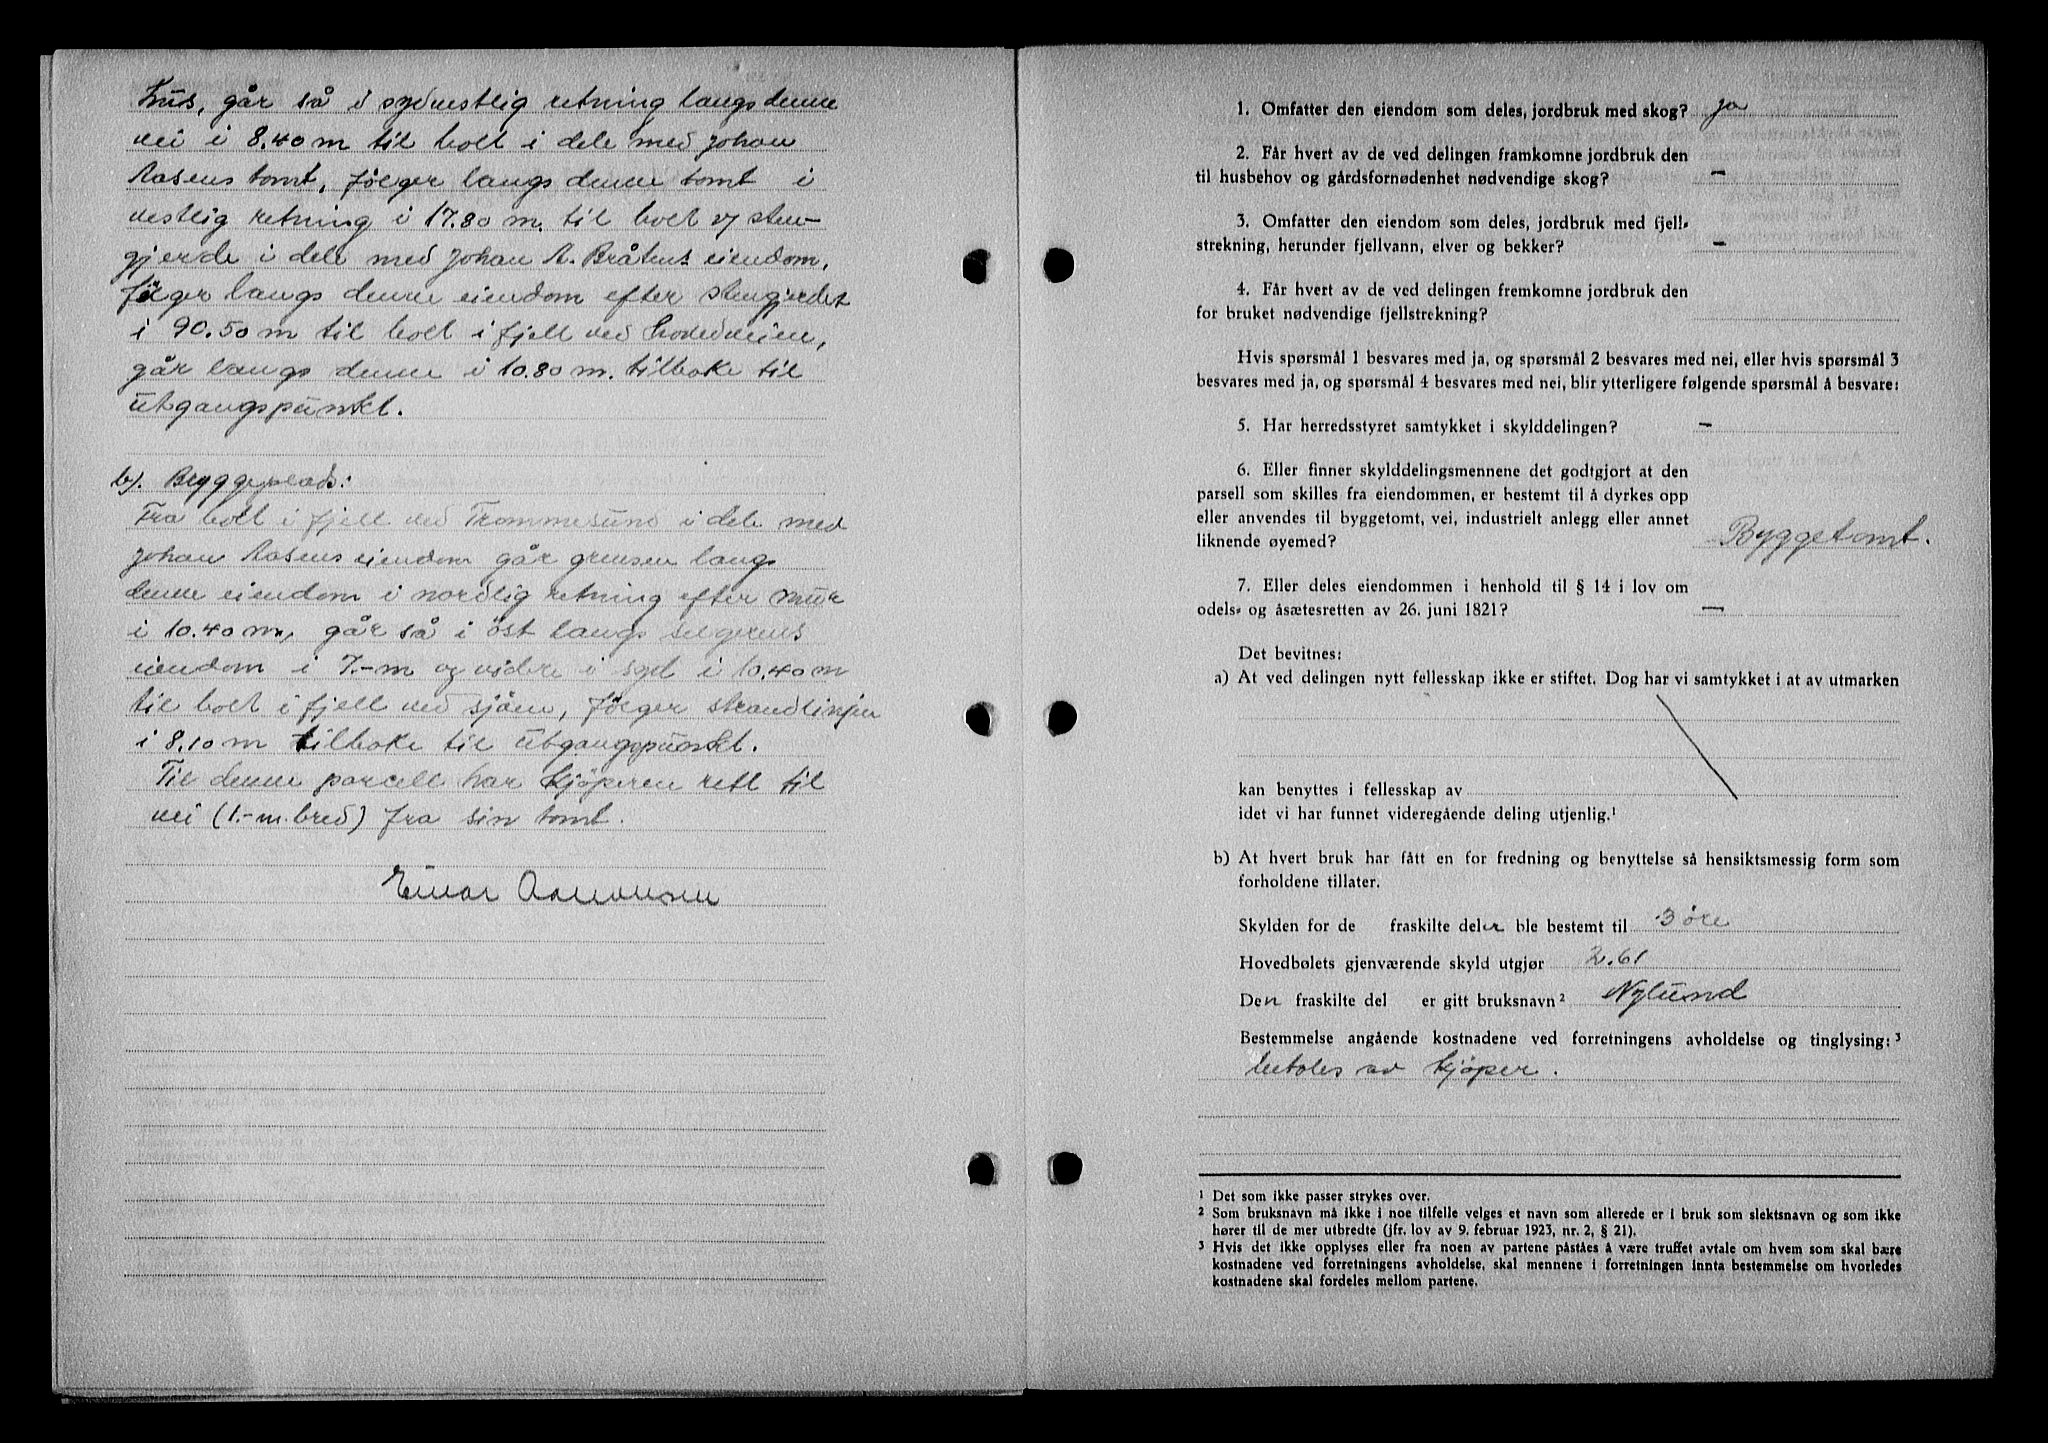 hus, går så i sydvestlig retning langs denne
vei i 8.40 m til bolt i dele med Johan
Aasens tomt, følger langs denne tomt i
vestlig retning i 17.80 m. til bolt v/ sten-
gjerde i dele med Johan A. Bråtens eiendom,
følger langs denne eiendom efter stengjerdet
i 90.50 m til bolt i fjell ved hovedveien,
går langs denne i 10.80 m. tilbake til
utgangspunkt.
b). Bryggeplads:
Fra bolt i fjell ved Trommesund i dele med
Johan Aasens eiendom går grensen langs
denne eiendom i nordlig retning efter mur
i 10.40 m, går så i öst langs selgerens
eiendom i 7.-m og videre i syd i 10.40 m
til bolt i fjell ved sjöen, følger strandlinjen
i 8.10 m tilbake til utgangspunkt.
Til denne parcell har kjöperen rett til
vei (1.-m. bred) fra sin tomt.
Einar Asmundsen
1. Omfatter den eiendom som deles, jordbruk med skog? ja
2. Får hvert av de ved delingen framkomne jordbruk den
til husbehov og gårdsfornødenhet nødvendige skog? —
3. Omfatter den eiendom som deles, jordbruk med fjell-
strekning, herunder fjellvann, elver og bekker? —
4. Får hvert av de ved delingen fremkomne jordbruk den
for bruket nødvendige fjellstrekning?
Hvis spørsmål 1 besvares med ja, og spørsmål 2 besvares med nei, eller hvis spørsmål 3
besvares med ja, og spørsmål 4 besvares med nei, blir ytterligere følgende spørsmål å besvare:
5. Har herredsstyret samtykket i skylddelingen? —
6. Eller finner skylddelingsmennene det godtgjort at den
parsell som skilles fra eiendommen, er bestemt til å dyrkes opp
eller anvendes til byggetomt, vei, industrielt anlegg eller annet
liknende øyemed? Byggetomt.
7. Eller deles eiendommen i henhold til § 14 i lov om
odels- og åsætesretten av 26. juni 1821? —
Det bevitnes:
a) At ved delingen nytt fellesskap ikke er stiftet. Dog har vi samtykket i at av utmarken
kan benyttes i fellesskap av
idet vi har funnet videregående deling utjenlig.¹
b) At hvert bruk har fått en for fredning og benyttelse så hensiktsmessig form som
forholdene tillater.
Skylden for de fraskilte deler ble bestemt til 3 öre
Hovedbølets gjenværende skyld utgjør 2.61
Den fraskilte del er gitt bruksnavn² Nylund
Bestemmelse angående kostnadene ved forretningens avholdelse og tinglysing:³
betales av kjöper.
¹ Det som ikke passer strykes over.
² Som bruksnavn må ikke i noe tilfelle velges et navn som allerede er i bruk som slektsnavn og som ikke
hører til de mer utbredte (jfr. lov av 9. februar 1923, nr. 2, § 21).
³ Hvis det ikke opplyses eller fra noen av partene påståes å være truffet avtale om hvem som skal bære
kostnadene ved forretningens avholdelse, skal mennene i forretningen innta bestemmelse om hvorledes
kostnadene skal fordeles mellom partene.